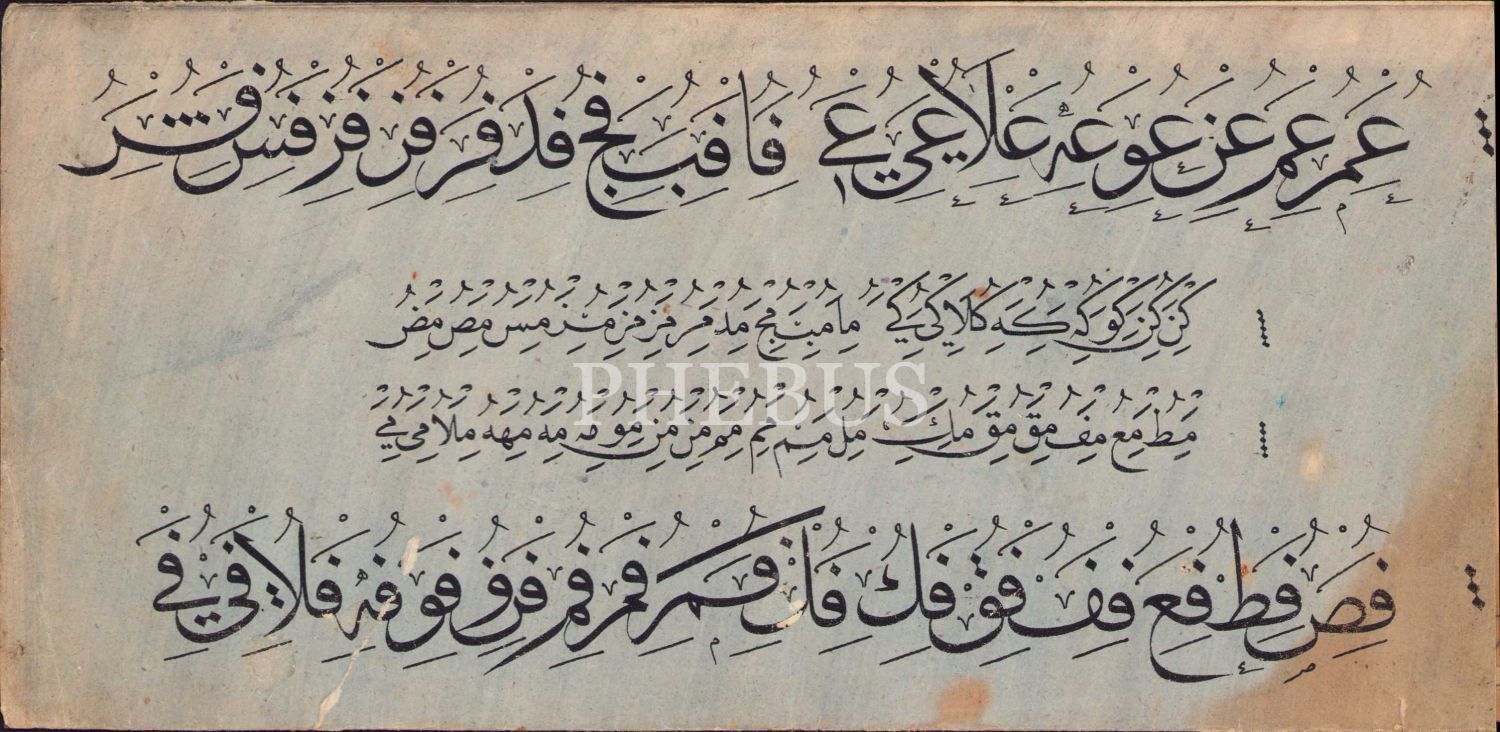 عم عم عن عو عه علا عى عے فا فب فج فد فر فس
كن كن كو كه كه كلا كى كے ما مب مج مد مر مس مص
PHEBUS
مط مع مف مق مق مك مل مم مم من من مو مه مه مهه ملا مى مے
فص فط فع فف فق فك فل فم فم فم فن فو فه فلا فى فے